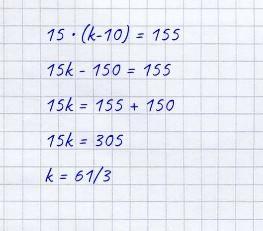 15 · (k-10) = 155
15k - 150 = 155
15k = 155 + 150
15k = 305
k = 61/3